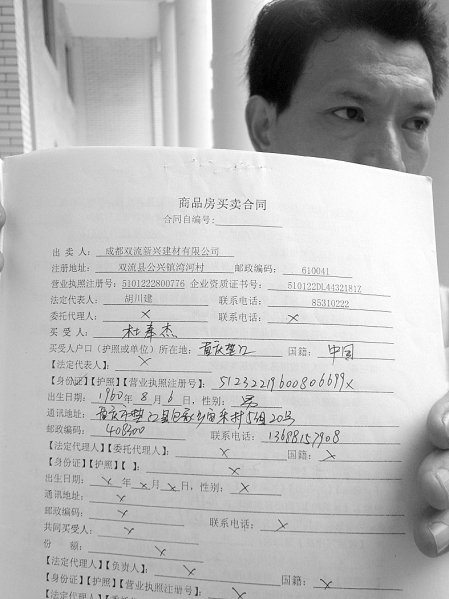 商品房买卖合同
合同自编号:
出卖人: 成都双流新兴建材有限公司
注册地址: 双流县公兴镇湾河村 邮政编码: 610041
营业执照注册号: 5101222800776 企业资质证书号: 510122DL4432181Z
法定代表人: 胡川建 联系电话: 85310222
委托代理人: ×
买受人: 杜奉杰
买受人户口(护照或单位)所在地: 重庆垫江 国籍: 中国
【法定代表人】: ×
【身份证】【护照】【营业执照注册号】: 51232219600806699×
出生日期: 1960年8月6日, 性别: 男
通讯地址: 重庆市垫江县 村5组20号
邮政编码: 408300 联系电话: 13698157908
【法定代理人】【委托代理人】: × 国籍: ×
【身份证】【护照】【 】: ×
出生日期: ×年×月×日, 性别: ×
通讯地址: ×
邮政编码: × 联系电话: ×
共同买受人: ×
份 额: ×
【法定代理人】【负责人】: × 国籍: ×
【身份证】【护照】【营业执照注册号】: ×
【法定代理人】